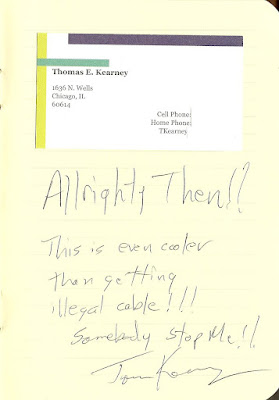 Thomas E. Kearney
1636 N. Wells
Chicago, IL
60614
Cell Phone:
Home Phone:
TKearney
Allrighty Then!!
This is even cooler
than getting
illegal cable!!!
Somebody Stop Me!!
Tom Kearney